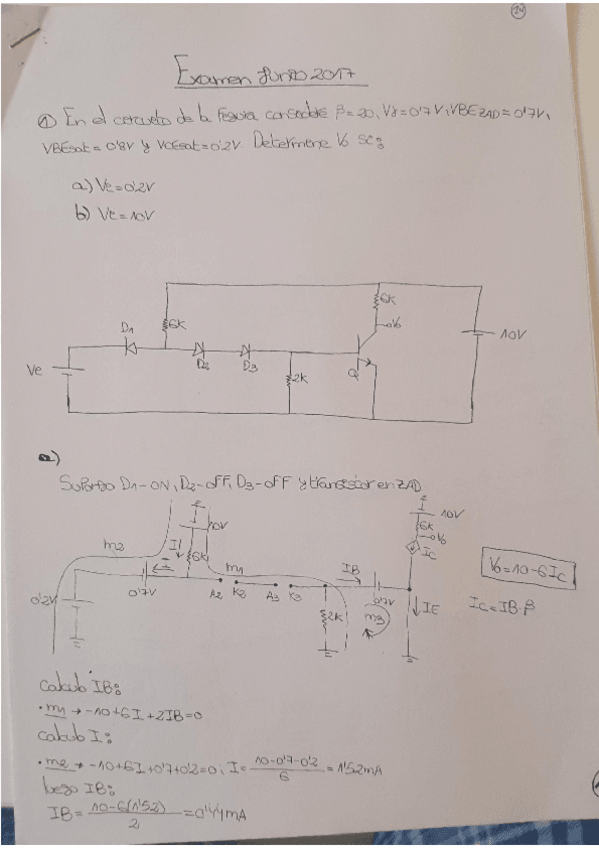 24
Examen Junio 2017
① En el circuito de la figura considere β=20, Vγ=0'7V, VBEZAD=0'7V,
VBEsat=0'8V y VCEsat=0'2V. Determine Vo si:
a) Ve=0'2V
b) Ve=10V
6K
6K
Vo
D1
10V
Ve
D2
D3
2K
Q
a)
Supongo D1-ON, D2-OFF, D3-OFF y transistor en ZAD
10V
10V
6K
Vo
m2
I
6K
m1
IB
IC
Vo=10-6IC
0'2V
0'7V
A2
K2
A3
K3
0'7V
2K
m3
IE
IC=IB·β
Calculo IB:
·m1 → -10+6I+2IB=0
Calculo I:
·m2 → -10+6I+0'7+0'2=0; I= 10-0'7-0'2 / 6 =1'52mA
luego IB:
IB= 10-6(1'52) / 2 =0'44mA